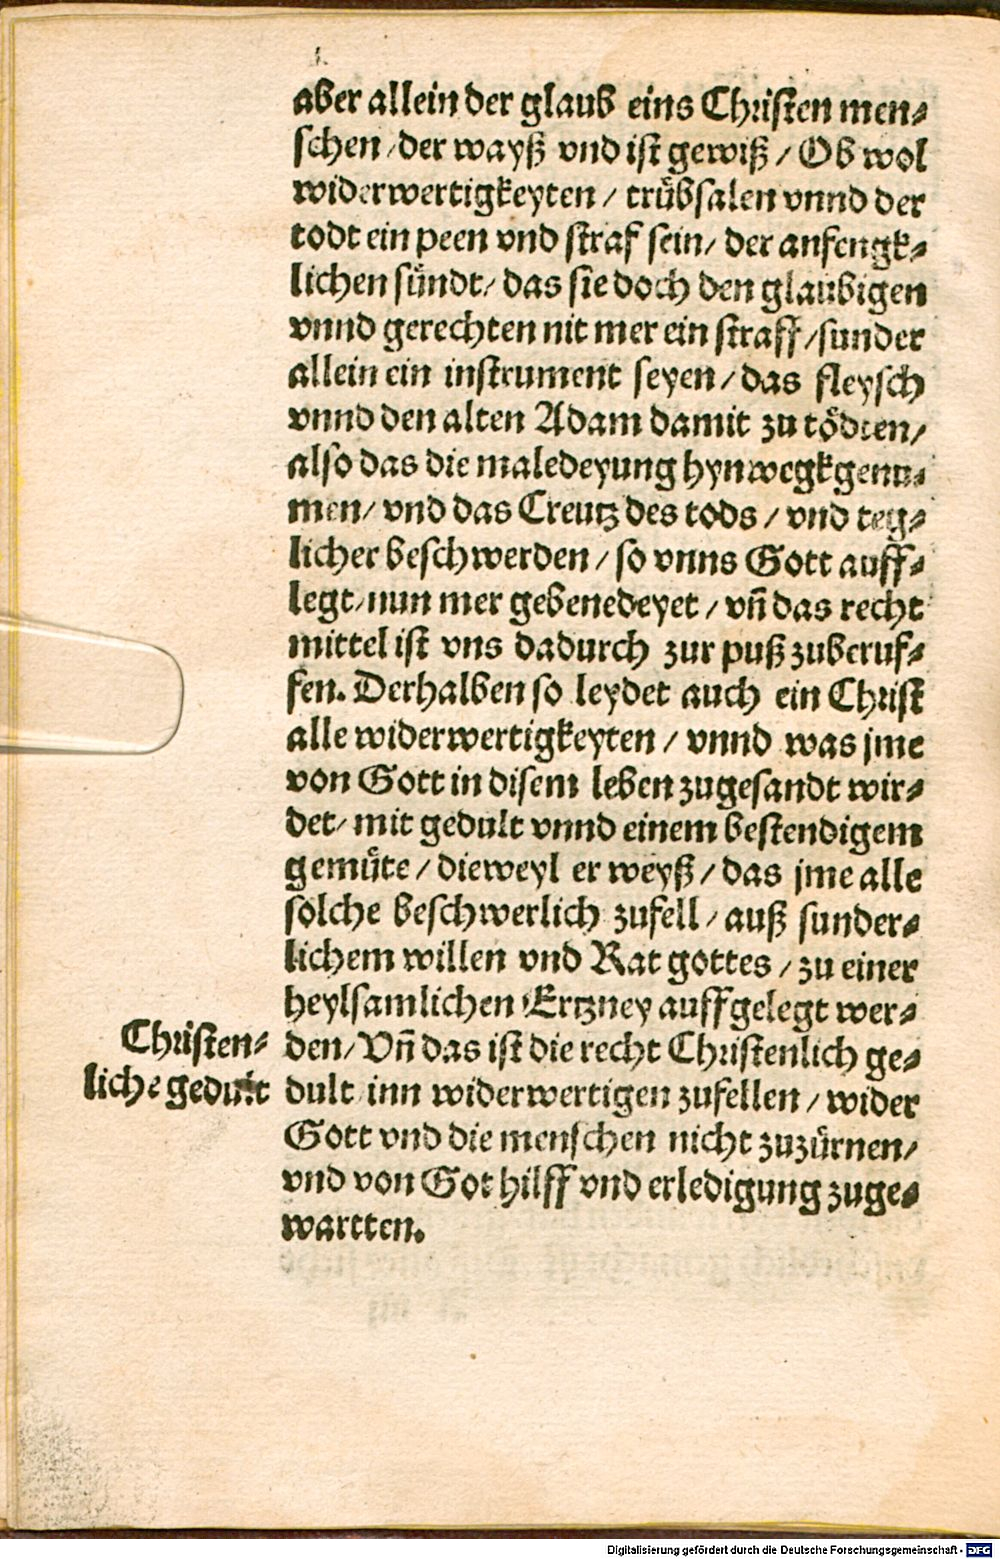 aber allein der glaub eins Christen men⸗
schen / der wayß vnd ist gewiß / Ob wol
widerwertigkeyten / trůbsalen vnnd der
todt ein peen vnd straf sein / der anfengk⸗
lichen sündt / das sie doch den glaubigen
vnnd gerechten nit mer ein straff / sunder
allein ein instrument seyen / das fleysch
vnnd den alten Adam damit zu tödten /
also das die maledeyung hynwegkgenu⸗
men / vnd das Creutz des tods / vnd teg⸗
licher beschwerden / so vnns Gott auff⸗
legt / nun mer gebenedeyet / vn̄ das recht
mittel ist vns dadurch zur puß zuberuf⸗
fen. Derhalben so leydet auch ein Christ
alle widerwertigkeyten / vnnd was jme
von Gott in disem leben zugesandt wir⸗
det / mit gedult vnnd einem bestendigem
gemüte / dieweyl er weyß / das jme alle
solche beschwerlich zufell / auß sunder⸗
lichem willen vnd Rat gottes / zu einer
heylsamlichen Ertzney auffgelegt wer⸗
den / Vn̄ das ist die recht Christenlich ge⸗
dult inn widerwertigen zufellen / wider
Gott vnd die menschen nicht zuzürnen /
vnd von Got hilff vnd erledigung zuge⸗
wartten.
Christen⸗
liche gedult
Digitalisierung gefördert durch die Deutsche Forschungsgemeinschaft - DFG